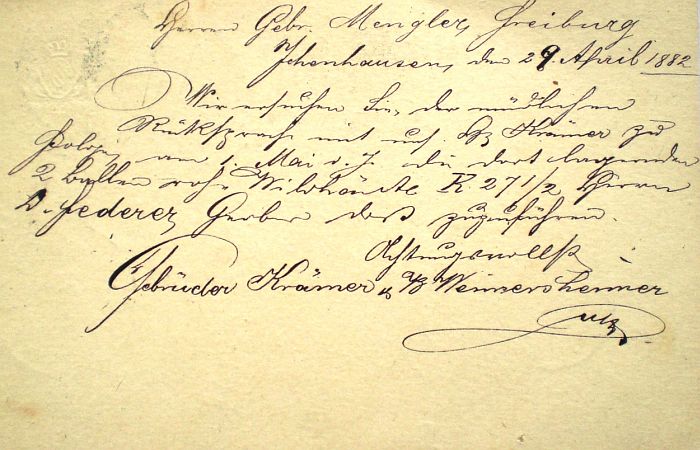 Herren Gebr. Mengler, Freiburg
Ichenhausen, den 29. April 1882
Wir ersuchen Sie, der mündlichen
Rüksprache mit uns Krämer zu
Folge, am 1. Mai d. J. die dort lagernden
2 Ballen rohe Wildhäute K. 27 1/2 Herrn
D. Federer, Gerber dort zuzuführen.
Achtungsvollst
Gebrüder Krämer & Weimersheimer